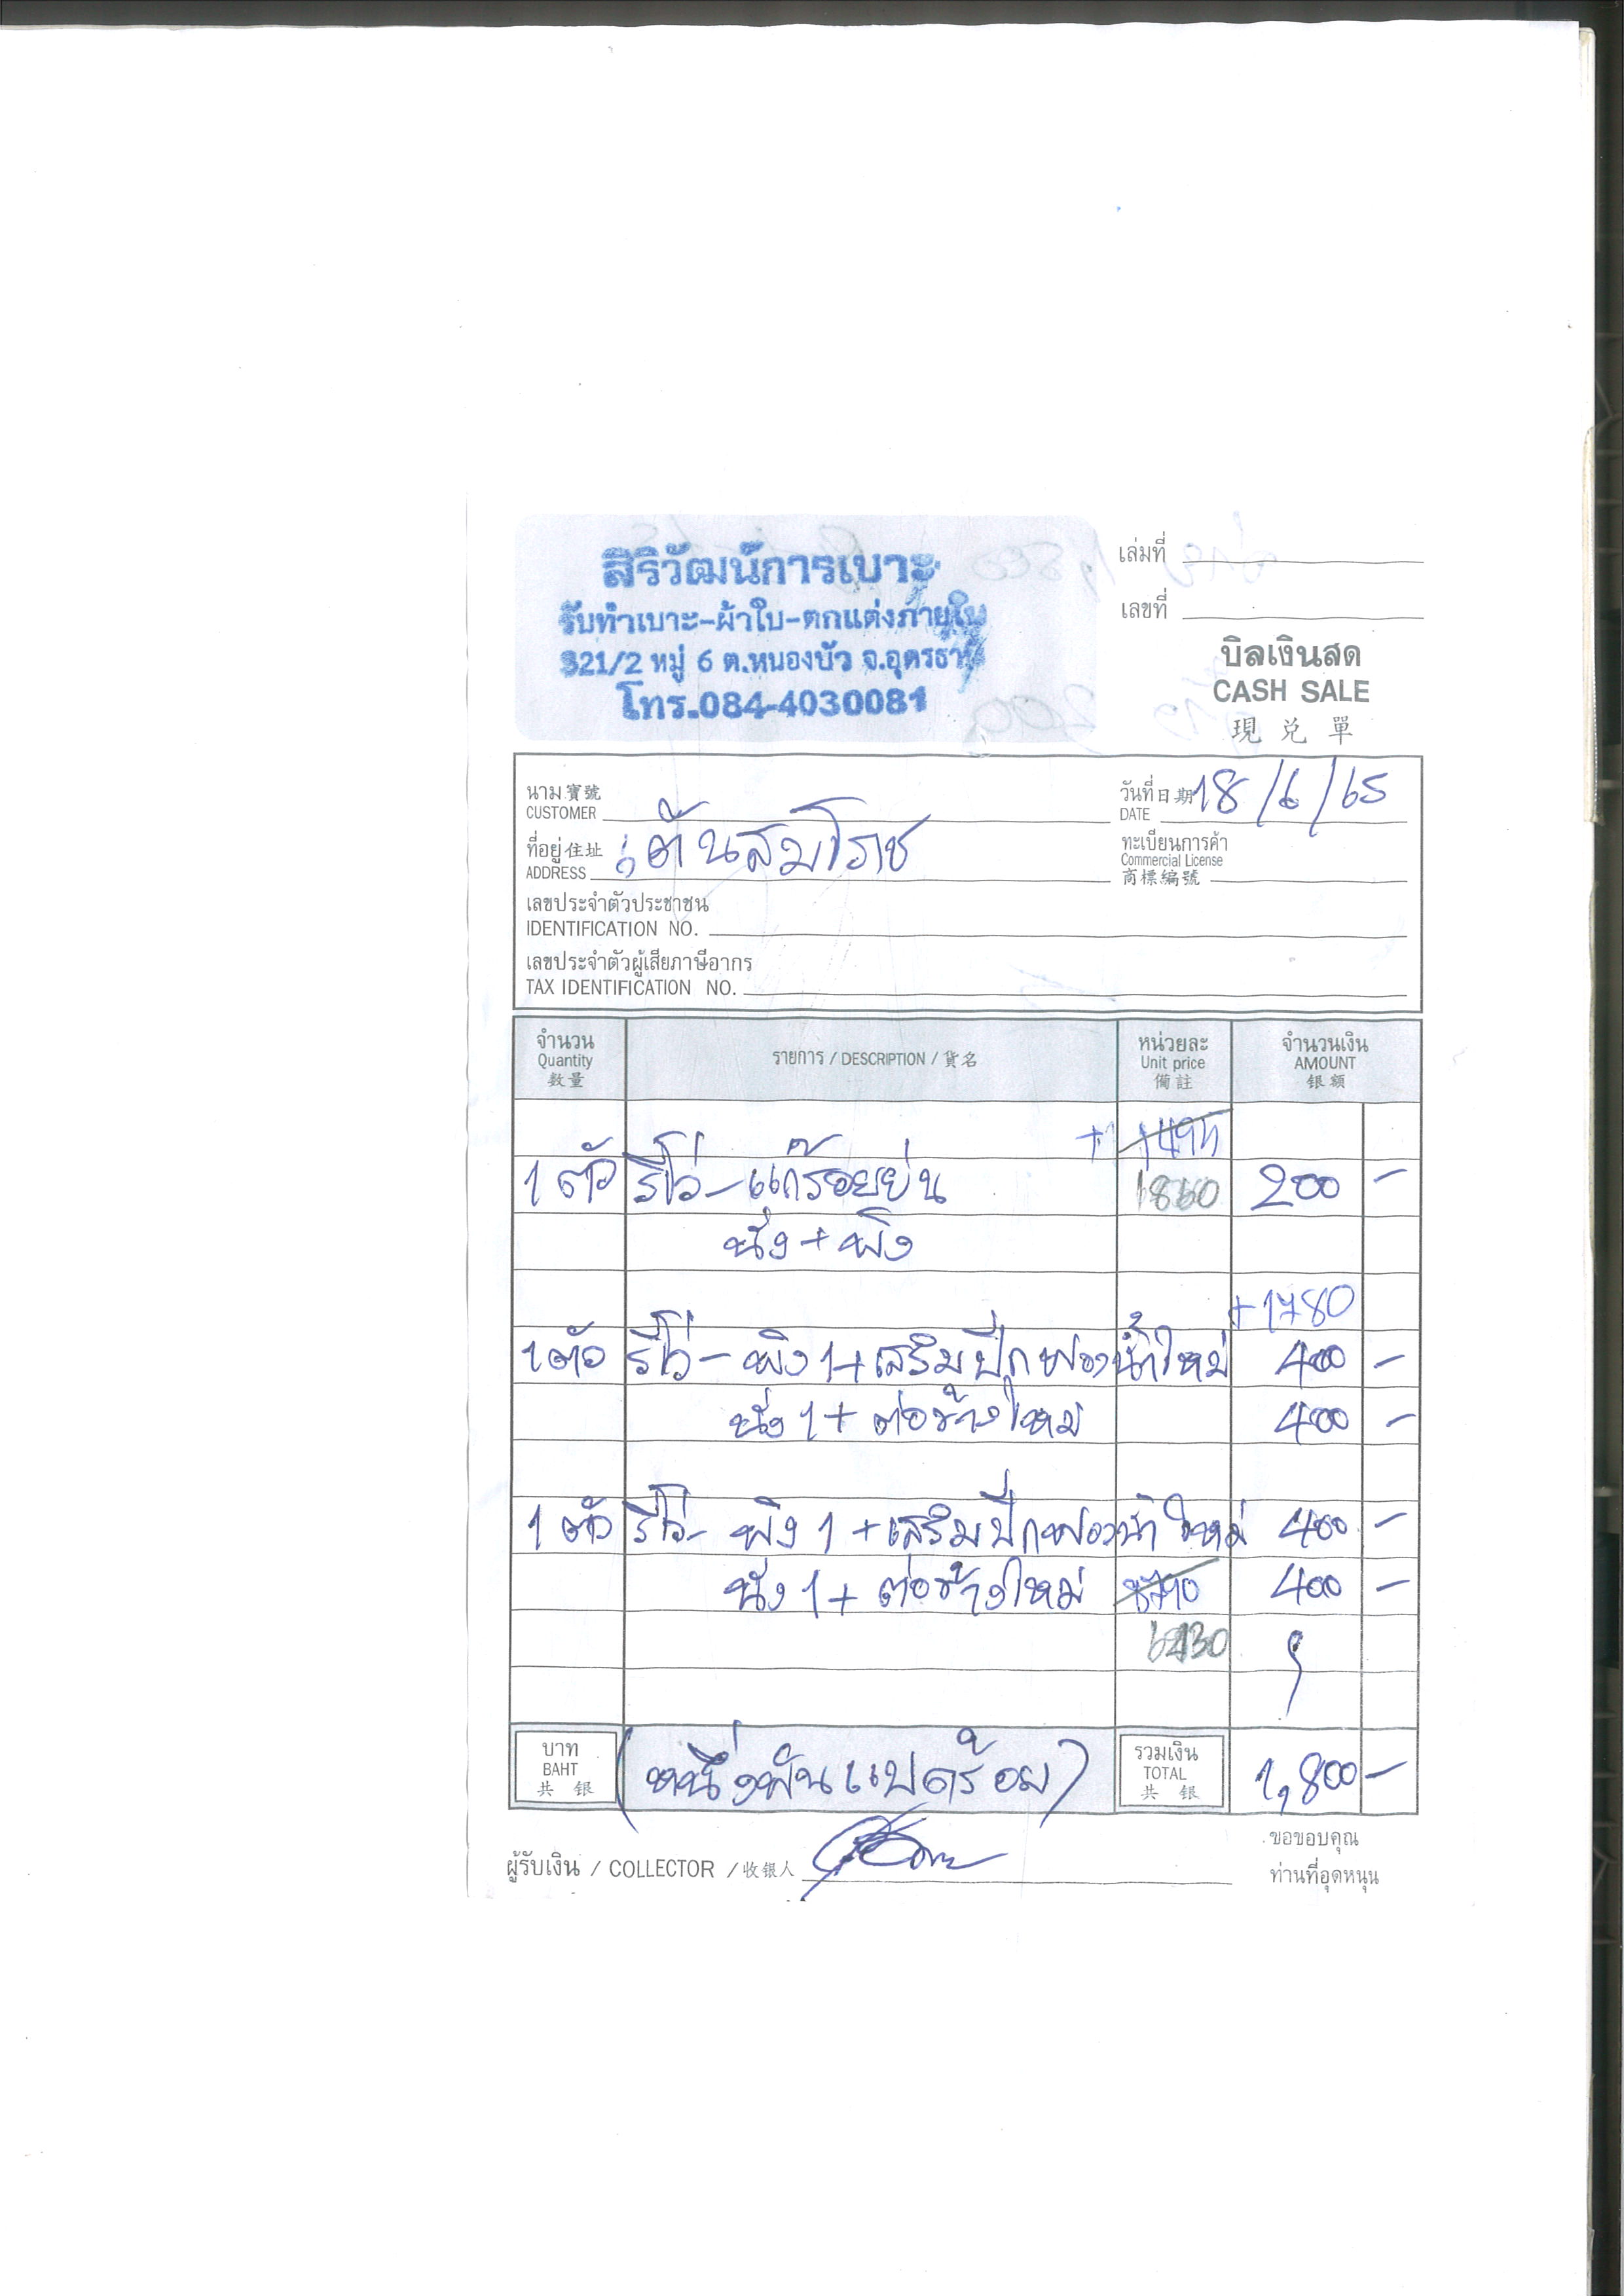 สิริวัฒน์การเบาะ
รับทำเบาะ-ผ้าใบ-ตกแต่งภายใน
321/2 หมู่ 6 ต.หนองบัว จ.อุดรธานี
โทร.084-4030081
เล่มที่
เลขที่
บิลเงินสด
CASH SALE
現兌單
นาม寶號
CUSTOMER
วันที่日期 18/6/65
DATE
ที่อยู่住址 เต้นสมโรช
ADDRESS
ทะเบียนการค้า
Commercial License
商標編號
เลขประจำตัวประชาชน
IDENTIFICATION NO.
เลขประจำตัวผู้เสียภาษีอากร
TAX IDENTIFICATION NO.
จำนวน รายการ / DESCRIPTION / 貨名 หน่วยละ จำนวนเงิน
Quantity Unit price AMOUNT
數量 備註 銀額
1 ตัว รีโว่-แก้รอยย่น 1860 200 -
นั่ง + พิง
+1780
1 ตัว รีโว่- พิง 1+เสริมปีกฟองน้ำใหม่ 400 -
นั่ง 1+ ต่อข้างใหม่ 400 -
1 ตัว รีโว่- พิง 1 +เสริมปีกฟองน้ำใหม่ 400 -
นั่ง 1+ ต่อข้างใหม่ 400 -
บาท (หนึ่งพันแปดร้อย) รวมเงิน 1,800 -
BAHT TOTAL
共銀 共銀
ผู้รับเงิน / COLLECTOR / 收银人
ขอขอบคุณ
ท่านที่อุดหนุน